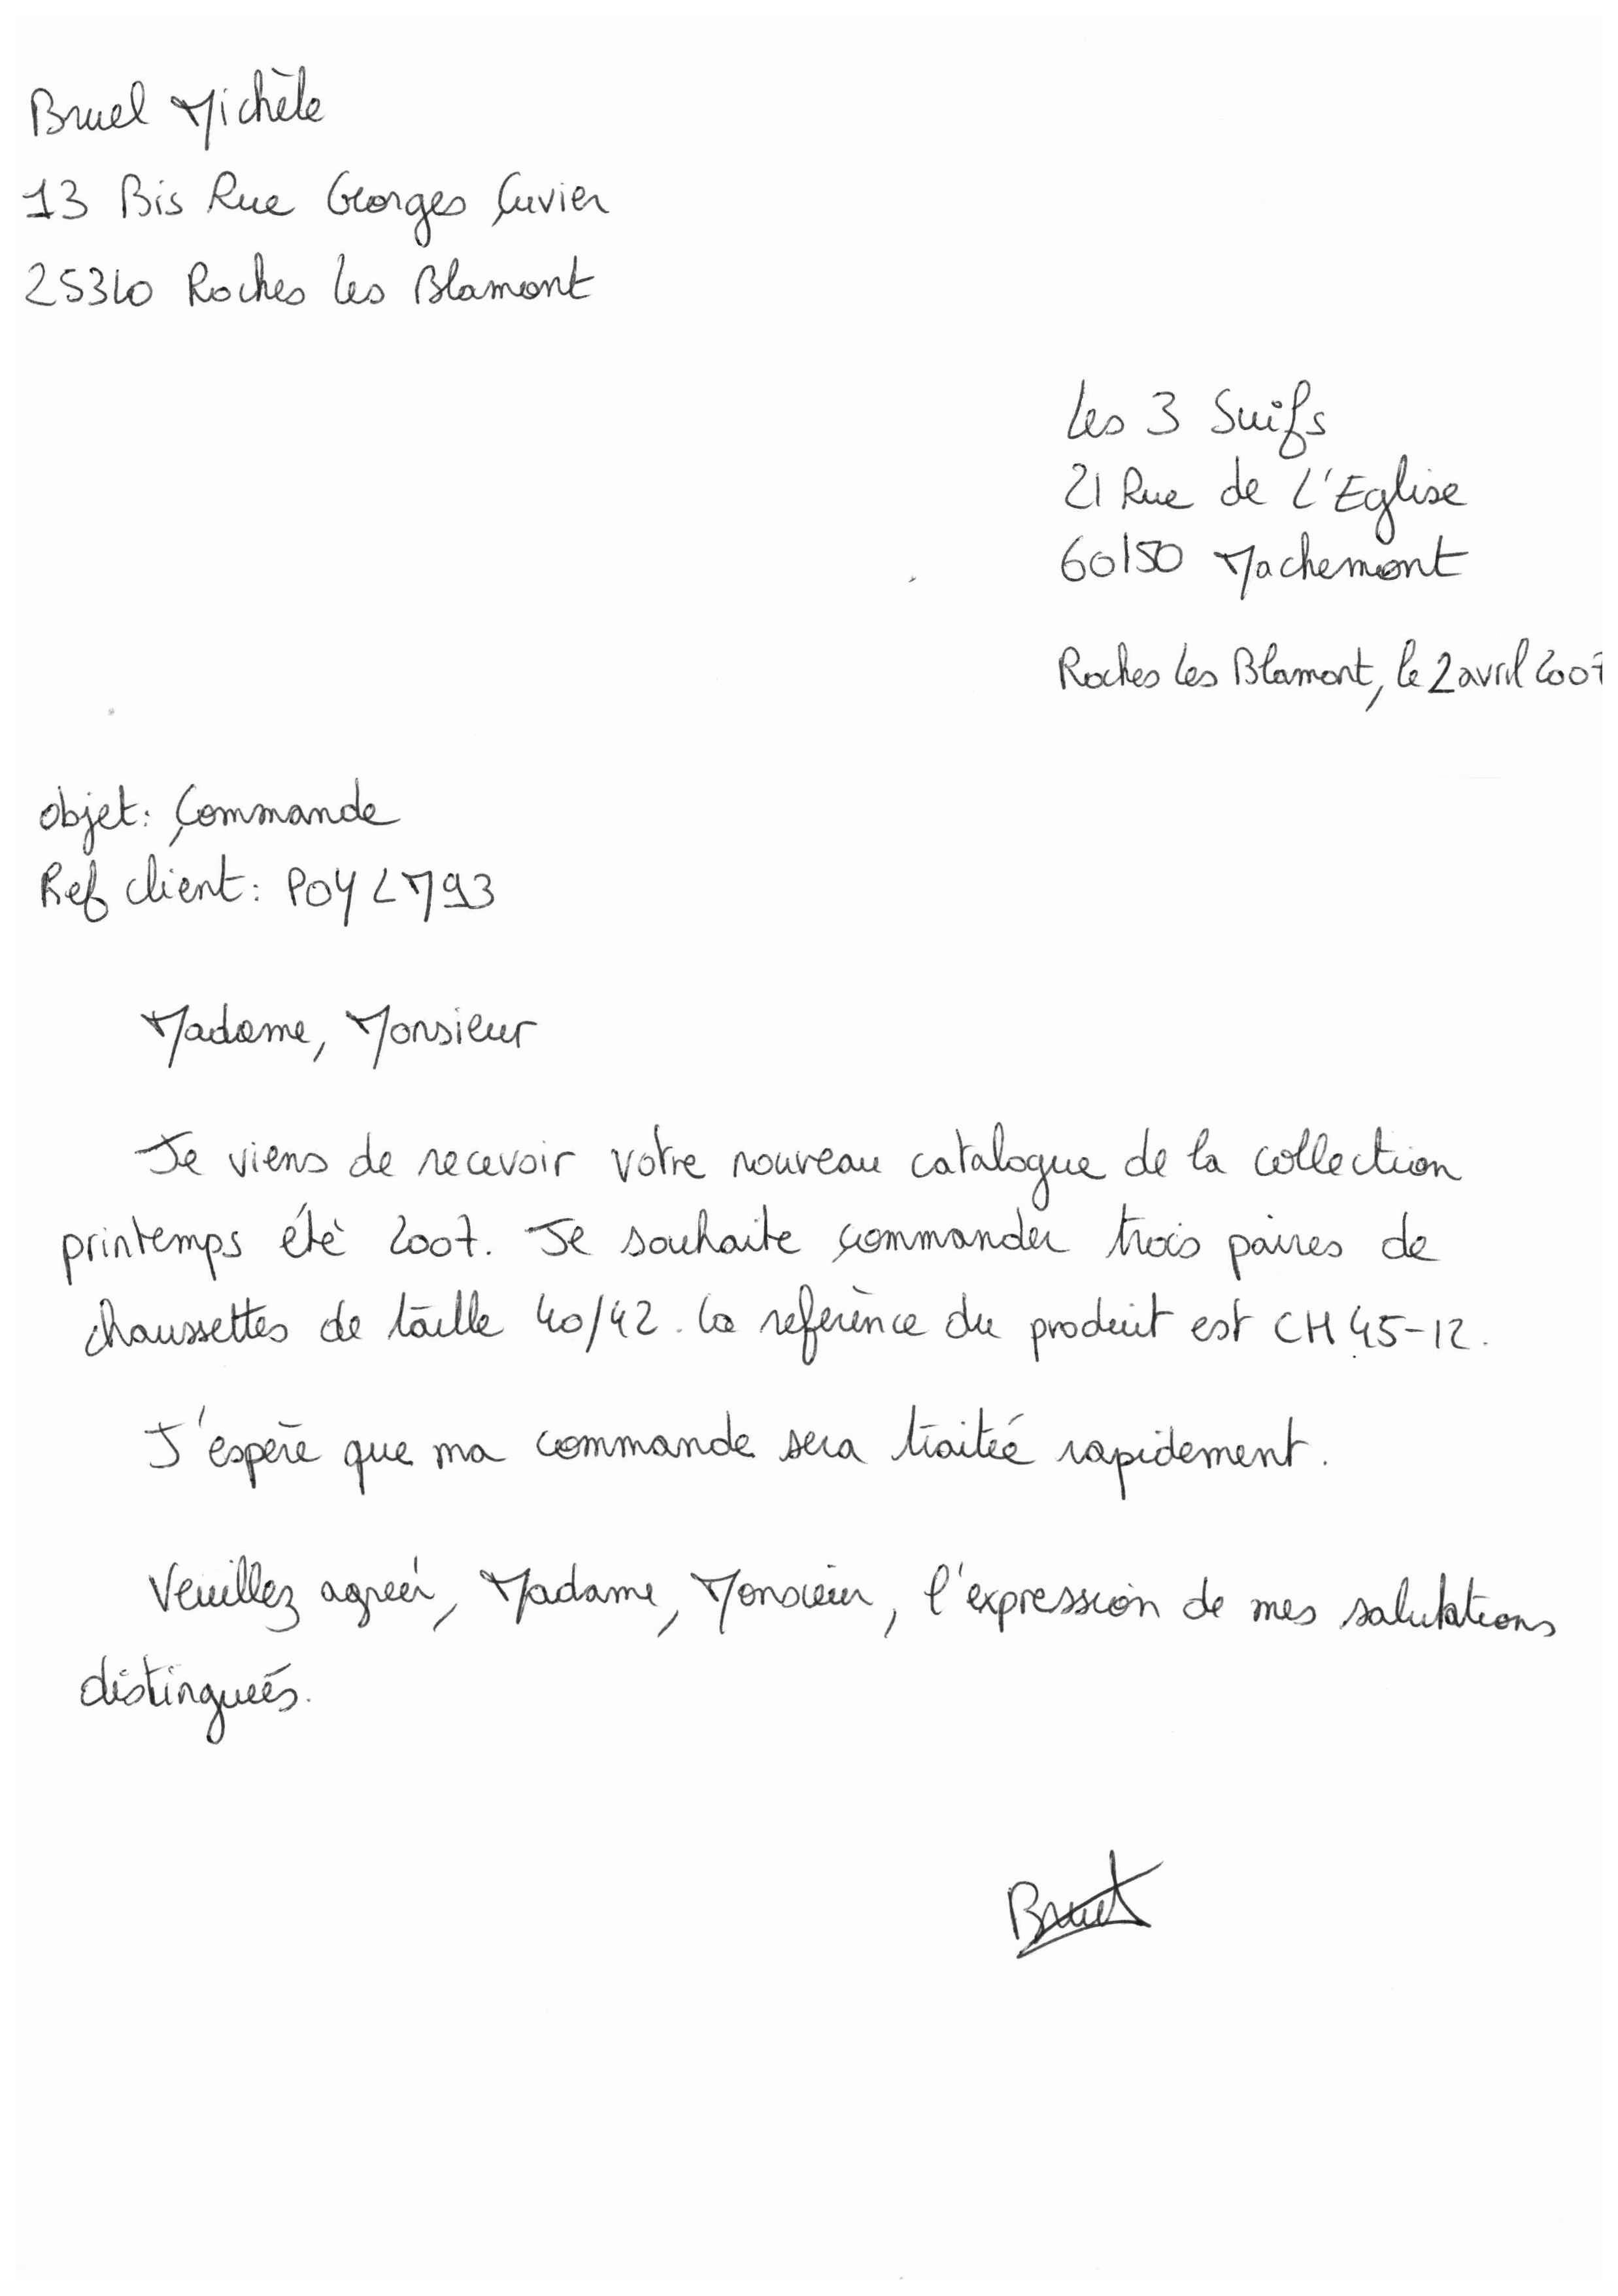 Bruel Michèle
13 Bis Rue Georges Cuvier
25310 Roches les Blamont
Les 3 Suifs
21 Rue de L'Eglise
60150 Machemont
Roches les Blamont, le 2 avril 2007
objet: Commande
Ref client: POYLM93
Madame, Monsieur
Je viens de recevoir votre nouveau catalogue de la collection
printemps été 2007. Je souhaite commander trois paires de
chaussettes de taille 40/42. La reférence du produit est CH45-12.
J'espère que ma commande sera traitée rapidement.
Veuillez agréer, Madame, Monsieur, l'expression de mes salutations
distinguées.
Bruel